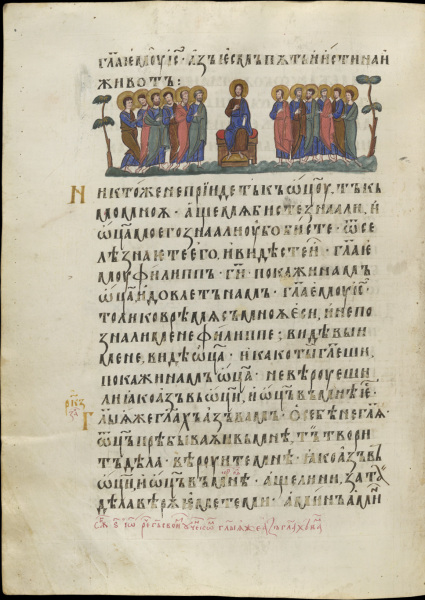 гл҃а ємоу і҃с · азъ ієсмь пѫть и истина и
животъ :
Никтоже не прїидеть къ ѡ҃цоу · тъкь
мо мноѫ · аще мѧ бисте знали, и
ѡ҃ца моего знали оубо бисте · ѿсе
лѣ знаете его, и видѣсте и · гл҃а ѥ
моу филиппь · г҃и покажи намъ
ѡ҃ца, и довлетъ намъ · гл҃а ємоу і҃с ·
толико врѣмѧ съ вами ѥсмь, и не по
зна мене филиппе ; видѣвыи
мене, видѣ ѡ҃ца · и како ты гл҃еши,
покажи намъ ѡ҃ца · не вѣроуеши
ли ꙗко азъ въ ѡ҃ци, и ѡ҃ць въ мнѣ ѥ҃ ·
гл҃ы ѧже гл҃ахъ азъ вамъ · ѡ себѣ не гл҃ѧ ·
ѡ҃ць прѣбываѧи въ мнѣ, тъ твори
тъ дѣла · вѣроуите мнѣ · ꙗко азъ въ
ѡ҃ци, и ѡ҃ць въ мнѣ · аще ли ни, за та
дѣла вѣрѫ ємлете ми · амин амин